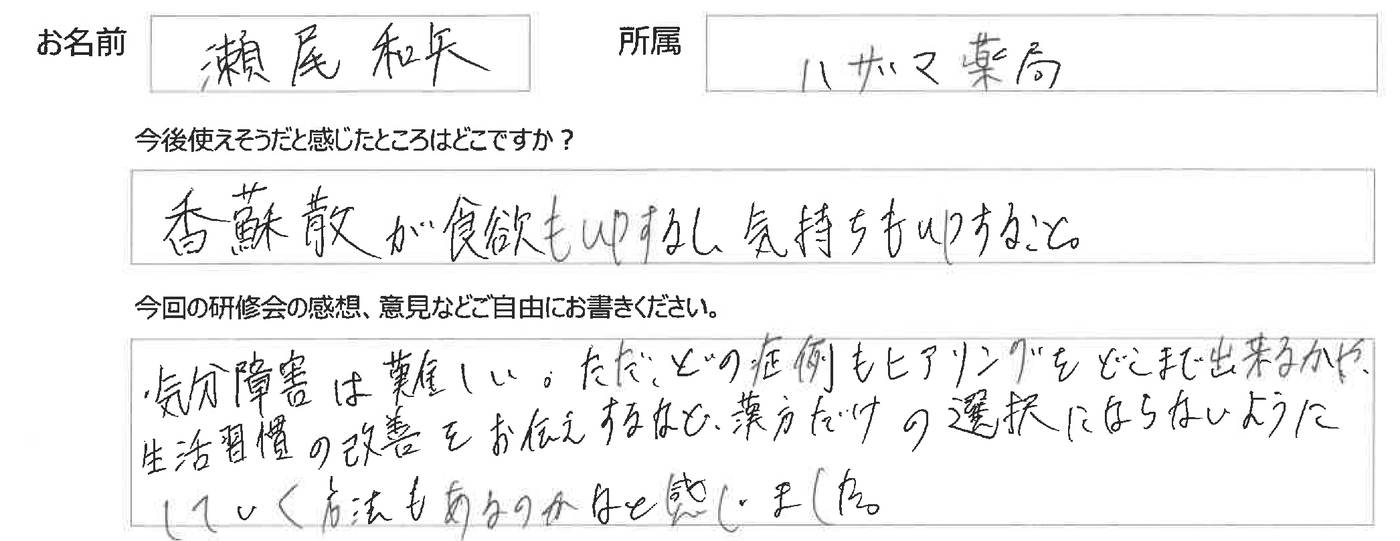 お名前 瀬尾 和矢 所属 ハザマ薬局
今後使えそうだと感じたところはどこですか？
香蘇散が食欲もupするし、気持ちもupすること。
今回の研修会の感想、意見などご自由にお書きください。
気分障害は難しい。ただ、どの症例もヒアリングをどこまで出来るかや、
生活習慣の改善をお伝えするなど、漢方だけの選択にならないように
していく方法もあるのかなと感じました。